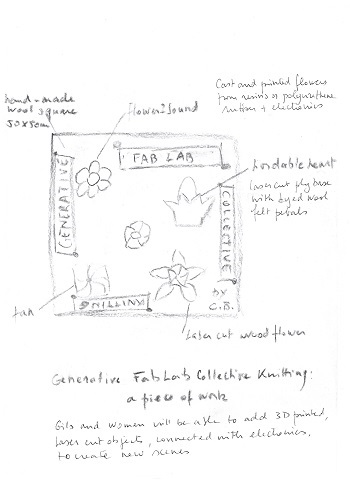 hand-made
wool square
50x50cm
Flower2Sound
Cast and printed flowers
from resins or polyurethane
motion + electronics
GENERATIVE
FAB LAB
COLLECTIVE
KNITTING
by
C.B.
heart
laser cut ply base
with dyed wool
felt petals
fan
Laser cut wood flower
Generative FabLab Collective Knitting:
a piece of work
Girls and women will be able to add 3D printed,
laser cut objects, connected with electronics,
to create new scenes